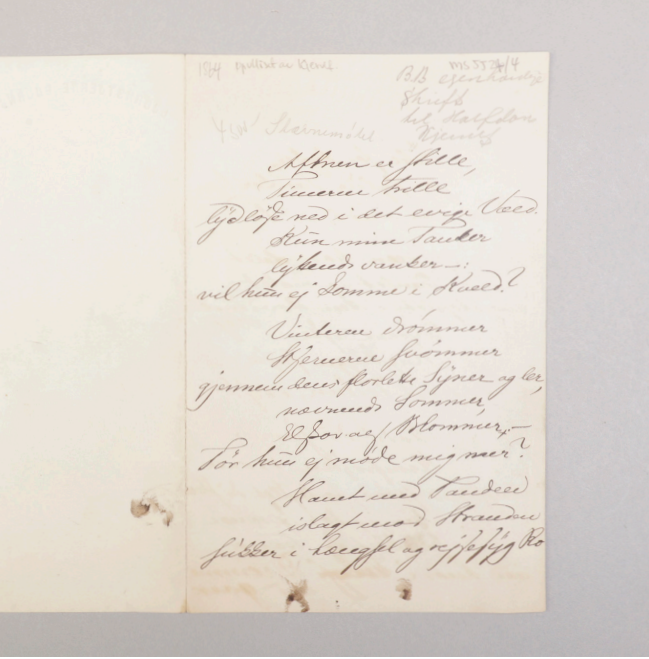 1894
ms 552/4
BB egenhændige
Skrift
til Halfdan
Kjerulf
Stævnemødet
Aftnen er stille,
Timerne trille
lydløse ned i det evige Væld.
Kun mine Tanker
lyttende vanker —:
vil hun ej komme i Kveld?
Vinteren drømmer
Stjernerne svømmer
gjennem dens florlette Syner og ler,
nævnende Sommer
Elskov af Blommer, —
Tør hun ej møde mig mer?
Havet med Panden
islagt mod Stranden
sukker i Længsel og rejsesyg Ro